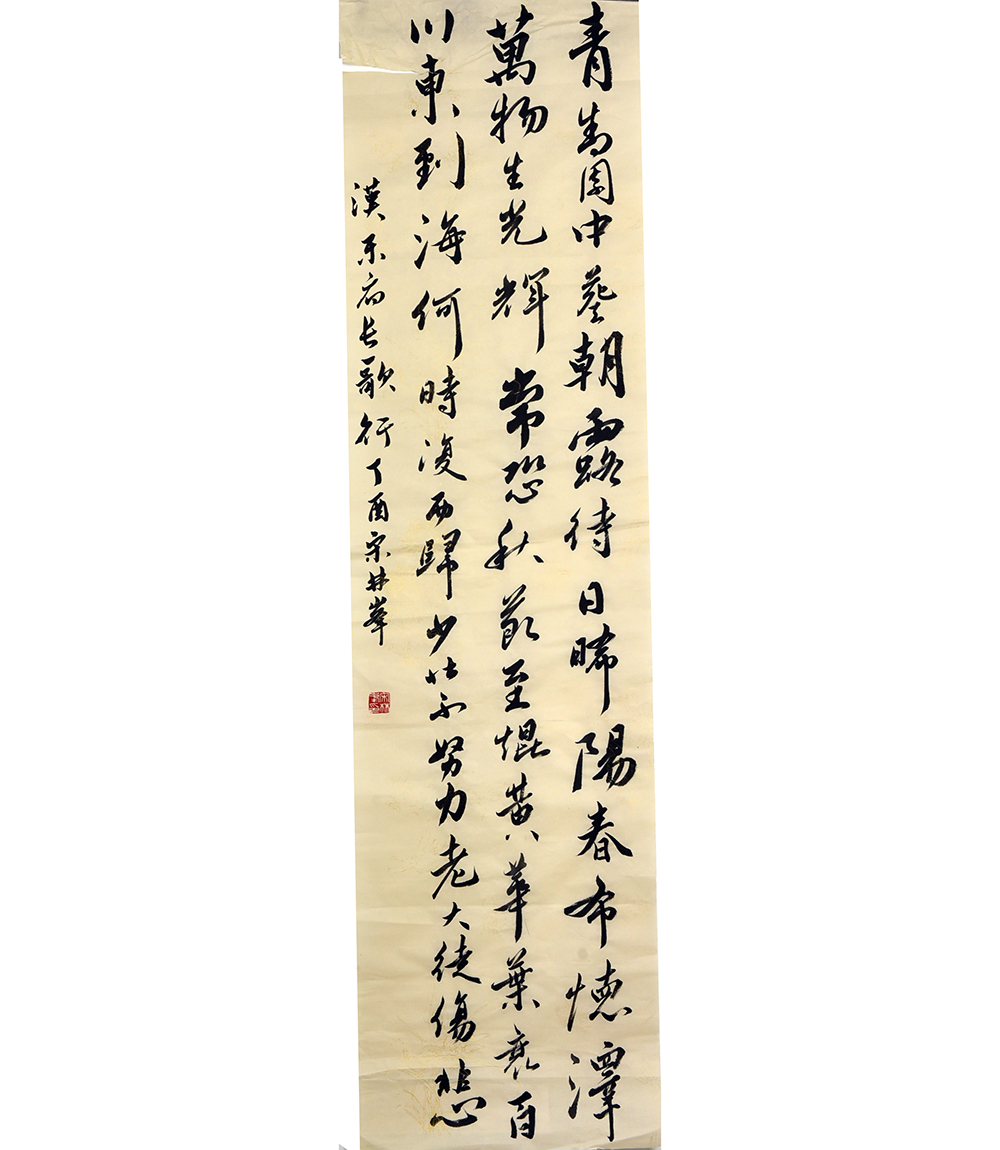 青青園中葵朝露待日晞陽春布德澤
萬物生光輝常恐秋節至焜黃華葉衰百
川東到海何時復西歸少壯不努力老大徒傷悲
漢樂府長歌行丁酉宋林峯